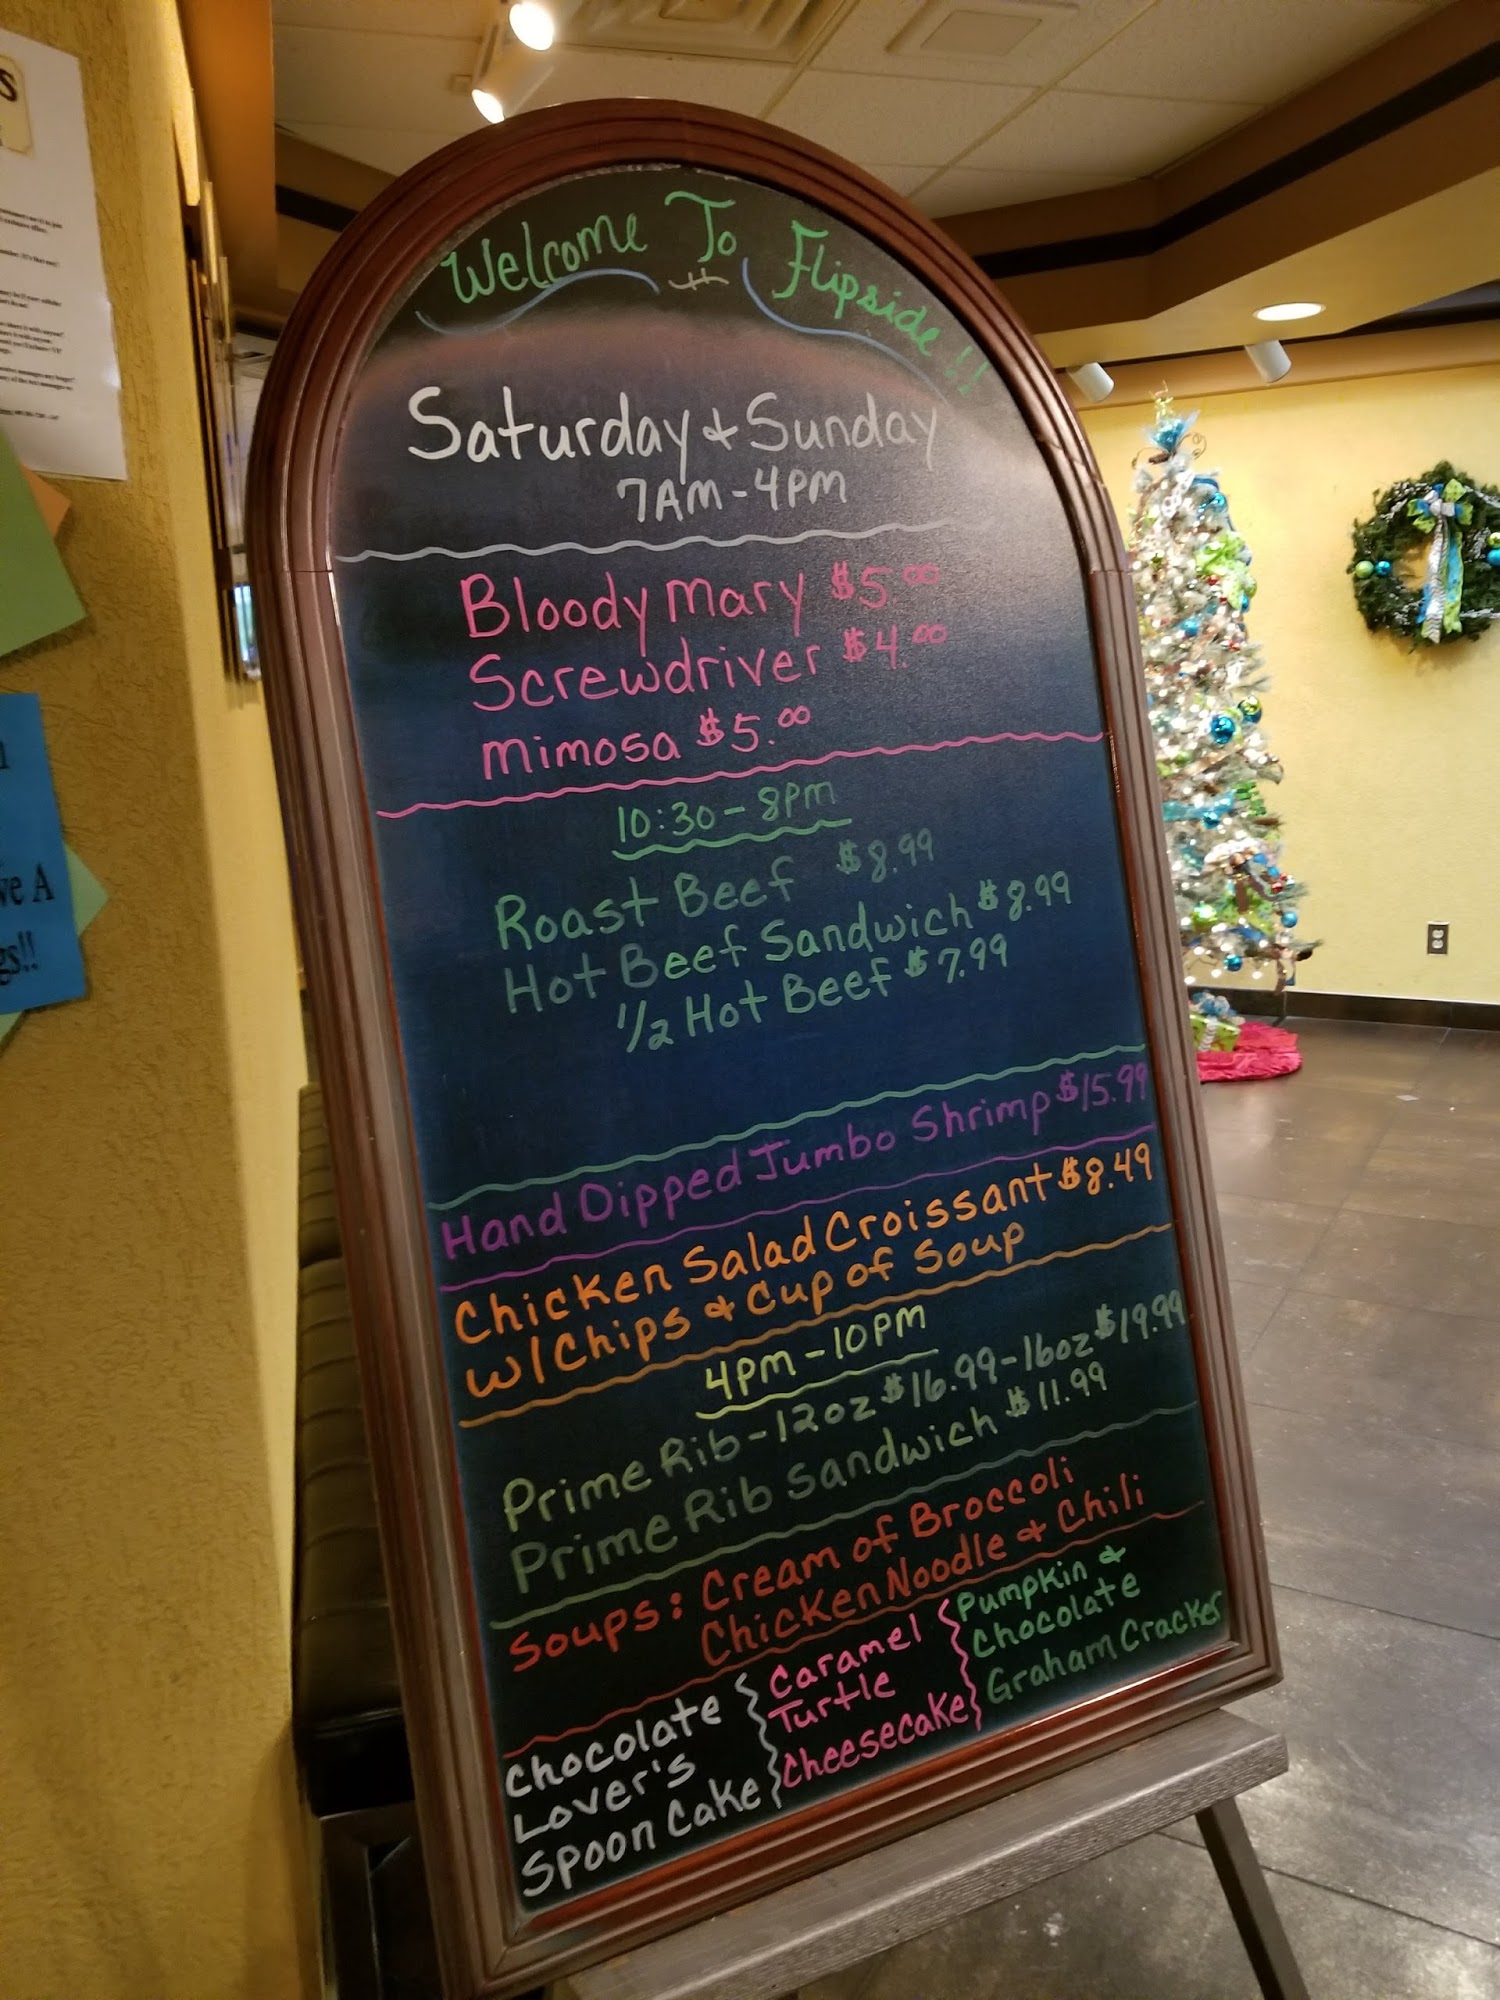 Welcome To Flipside!!
Saturday & Sunday
7AM - 4PM
Bloody Mary $5.00
Screwdriver $4.00
Mimosa $5.00
10:30 - 8PM
Roast Beef $8.99
Hot Beef Sandwich $8.99
1/2 Hot Beef $7.99
Hand Dipped Jumbo Shrimp $15.99
Chicken Salad Croissant $8.49
w/ Chips & Cup of Soup
4PM - 10PM
Prime Rib - 12oz $16.99 - 16oz $19.99
Prime Rib Sandwich $11.99
Soups: Cream of Broccoli
Chicken Noodle & Chili
Chocolate
Lover's
Spoon Cake
Caramel
Turtle
Cheesecake
Pumpkin &
Chocolate
Graham Cracker
ve A
gs!!